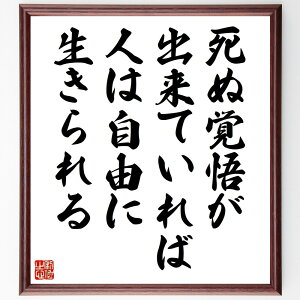 死ぬ覚悟が
出来ていれば
人は自由に
生きられる